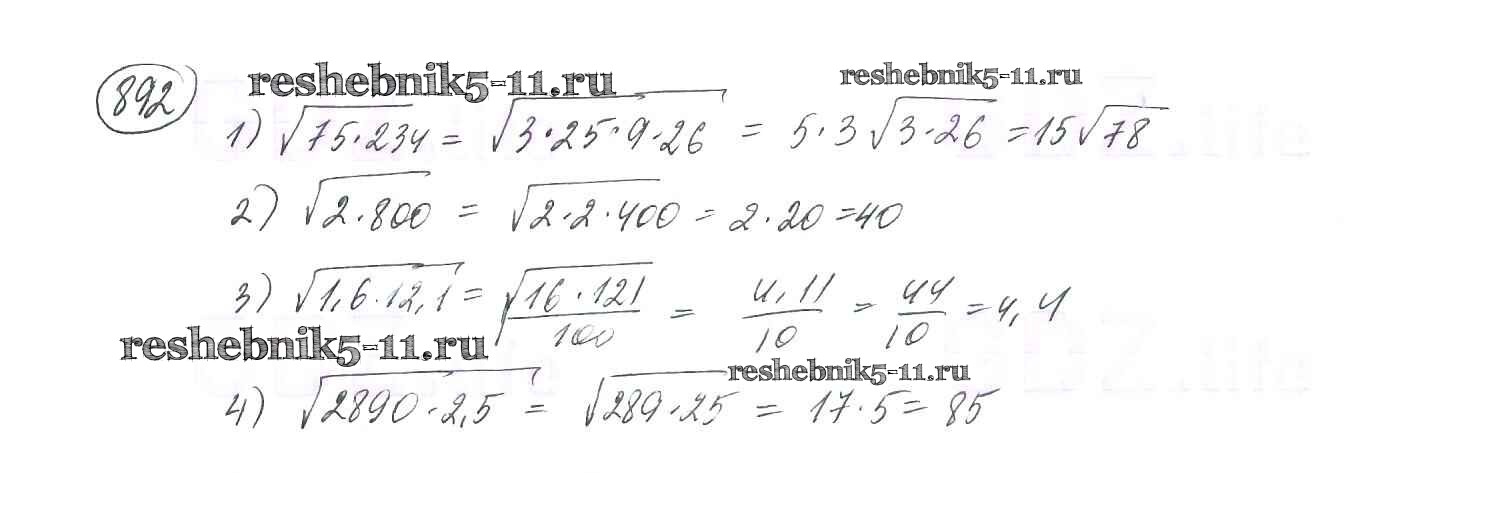 892 reshebnik5-11.ru reshebnik5-11.ru
1) √75·234 = √3·25·9·26 = 5·3√3·26 = 15√78
2) √2·800 = √2·2·400 = 2·20 = 40
3) √1,6·12,1 = √16·121/100 = 4·11/10 = 44/10 = 4,4
reshebnik5-11.ru reshebnik5-11.ru
4) √2890·2,5 = √289·25 = 17·5 = 85